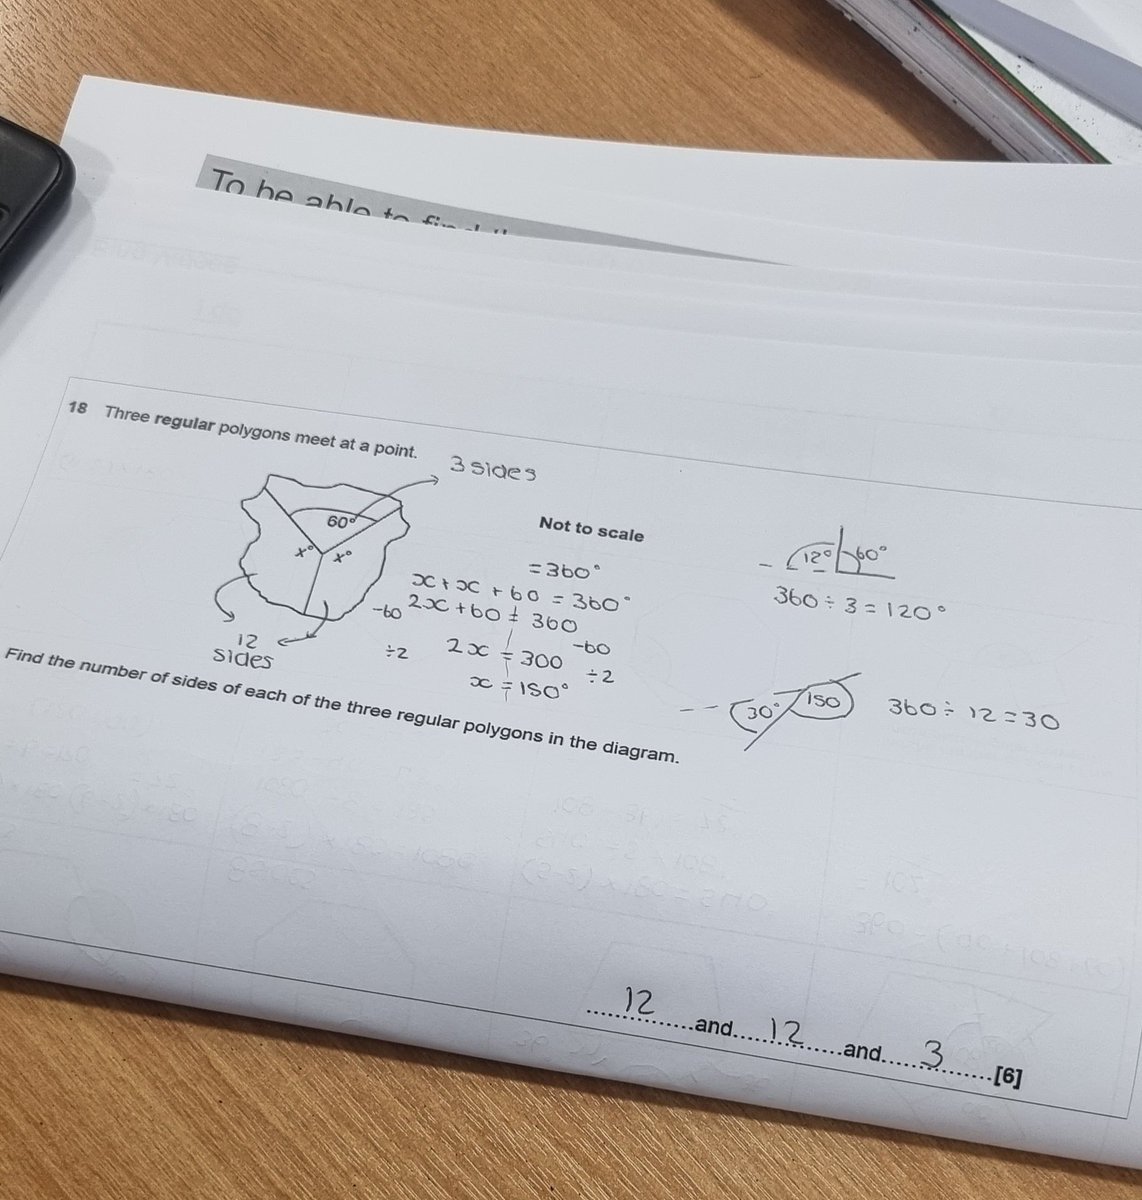 To be able to find
18 Three regular polygons meet at a point.
3 sides
60°
x° x°
Not to scale
= 360°
x + x + 60 = 360°
-60 2x + 60 = 360 -60
÷2 2x = 300 ÷2
x = 150°
12
sides
12° 60°
360 ÷ 3 = 120°
30° 150 360 ÷ 12 = 30
Find the number of sides of each of the three regular polygons in the diagram.
12 and 12 and 3 [6]